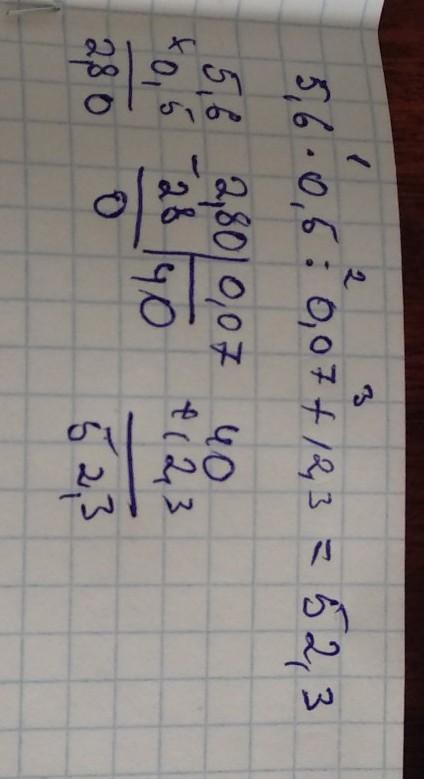 1 2 3
5,6 · 0,5 : 0,07 + 12,3 = 52,3
5,6
× 0,5
2,80
2,80 | 0,07
− 28 | 40
0
40
+ 12,3
52,3